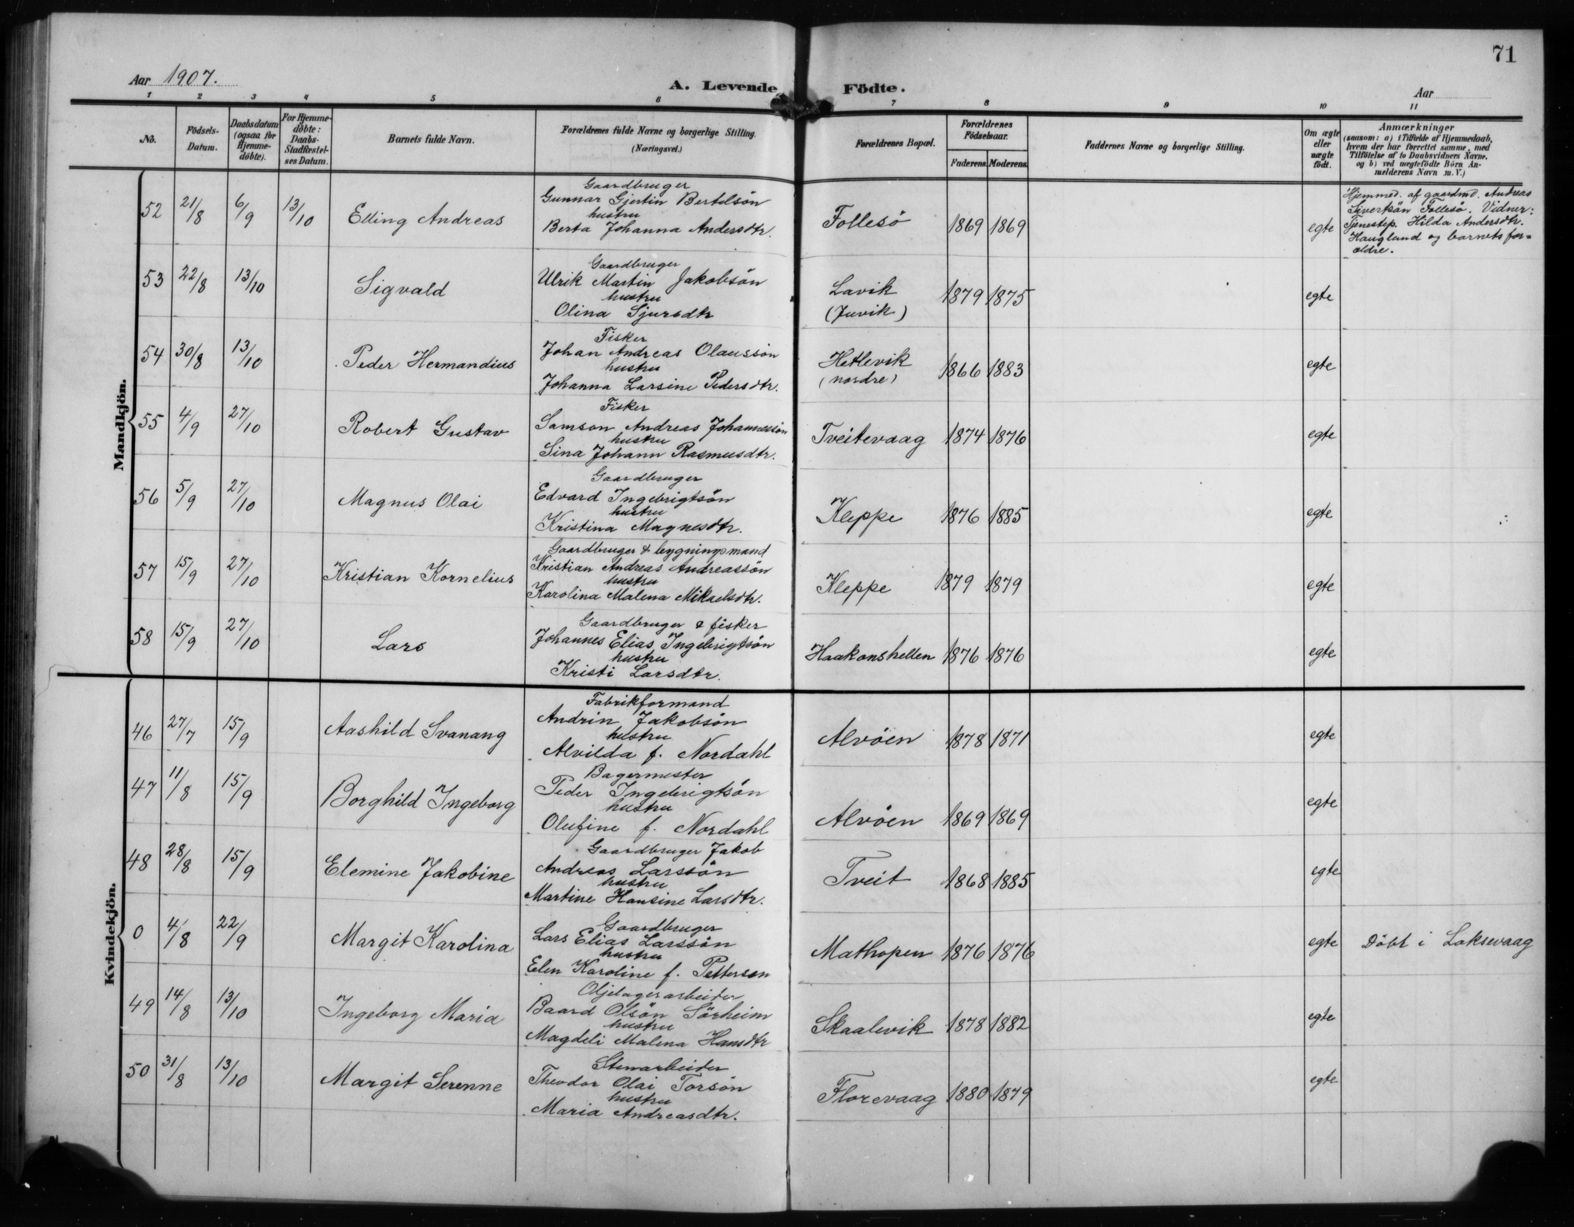 71
Aar 1907.
A. Levende Födte.
Aar
1 2 3 4 5 6 7 8 9 10 11
No.
Födsels-Datum.
Daabsdatum (ogsaa for Hjemme-döbte).
For Hjemme-döbte: Daabs-Stadfæstel-ses Datum.
Barnets fulde Navn.
Forældrenes fulde Navne og borgerlige Stilling. (Næringsvei.)
Forældrenes Bopæl.
Forældrenes Födselsaar.
Faderens. Moderens.
Faddernes Navne og borgerlige Stilling.
Om ægte eller uægte födt.
Anmærkninger
(saasom: a) i Tilfælde af Hjemmedaab,
hvem der har forrettet samme, med
Tilföielse af to Daabsvidners Navne,
og b) ved uægtefödte Börn An-
melderens Navn m. V.)
Mandkjön.
52 21/8 6/9 13/10 Elling Andreas
Gaardbruger
Gunnar Gjertin Bertelsön
hustru
Berta Johanna Andersdtr.
Follesö 1869 1869 egte
Hjemmed. af gaardmd. Andreas
Follesö. Vidner:
Tjenestep. Hilda Andersdtr.
Haugland og barnets for=
ældre.
53 22/8 13/10 Sigvald
Gaardbruger
Ulrik Martin Jakobsön
hustru
Olina Sjursdtr
Lavik
(Juvik)
1879 1875 egte
54 30/8 13/10 Peder Hermandius
Fisker
Johan Andreas Olaussön
hustru
Johanna Larsine Pedersdtr.
Hetlevik
(nordre)
1866 1883 egte
55 4/9 27/10 Robert Gustav
Fisker
Samson Andreas Johannessön
hustru
Sina Johann Rasmusdtr.
Tveitevaag 1874 1876 egte
56 5/9 27/10 Magnus Olai
Gaardbruger
Edvard Ingebrigtsön
hustru
Kristina Magnesdtr.
Kleppe 1876 1885 egte
57 15/9 27/10 Kristian Kornelius
Gaardbruger & bygningsmand
Kristian Andreas Andreassön
hustru
Karolina Malena Mikaelsdtr.
Kleppe 1879 1879 egte
58 15/9 27/10 Lars
Gaardbruger & fisker
Johannes Elias Ingebrigtsön
hustru
Kristi Larsdtr.
Haakonshellen 1876 1876 egte
Kvindekjön.
46 27/7 15/9 Aashild Svanang
Fabrikformand
Andrin Jakobsön
hustru
Alvilda f. Nordahl
Alvöen 1878 1871 egte
47 11/8 15/9 Borghild Ingeborg
Bagermester
Peder Ingebrigtsön
hustru
Olufine f. Nordahl
Alvöen 1869 1869 egte
48 28/8 15/9 Elemine Jakobine
Gaardbruger Jakob
Andreas Larssön
hustru
Martine Hansine Larsdtr.
Tveit 1868 1885 egte
0 4/8 22/9 Margit Karolina
Gaardbruger
Lars Elias Larssön
hustru
Elen Karoline f. Pettersen
Mathopen 1876 1876 egte Döbt i Laksevaag
49 14/8 13/10 Ingeborg Maria
Oljelagerarbeider
Baard Olsön Sörheim
hustru
Magdeli Malena Hansdtr
Skaalevik 1878 1882 egte
50 31/8 13/10 Margit Serenne
Stenarbeider
Theodor Olai Torsön
hustru
Maria Andreasdtr.
Florevaag 1880 1879 egte